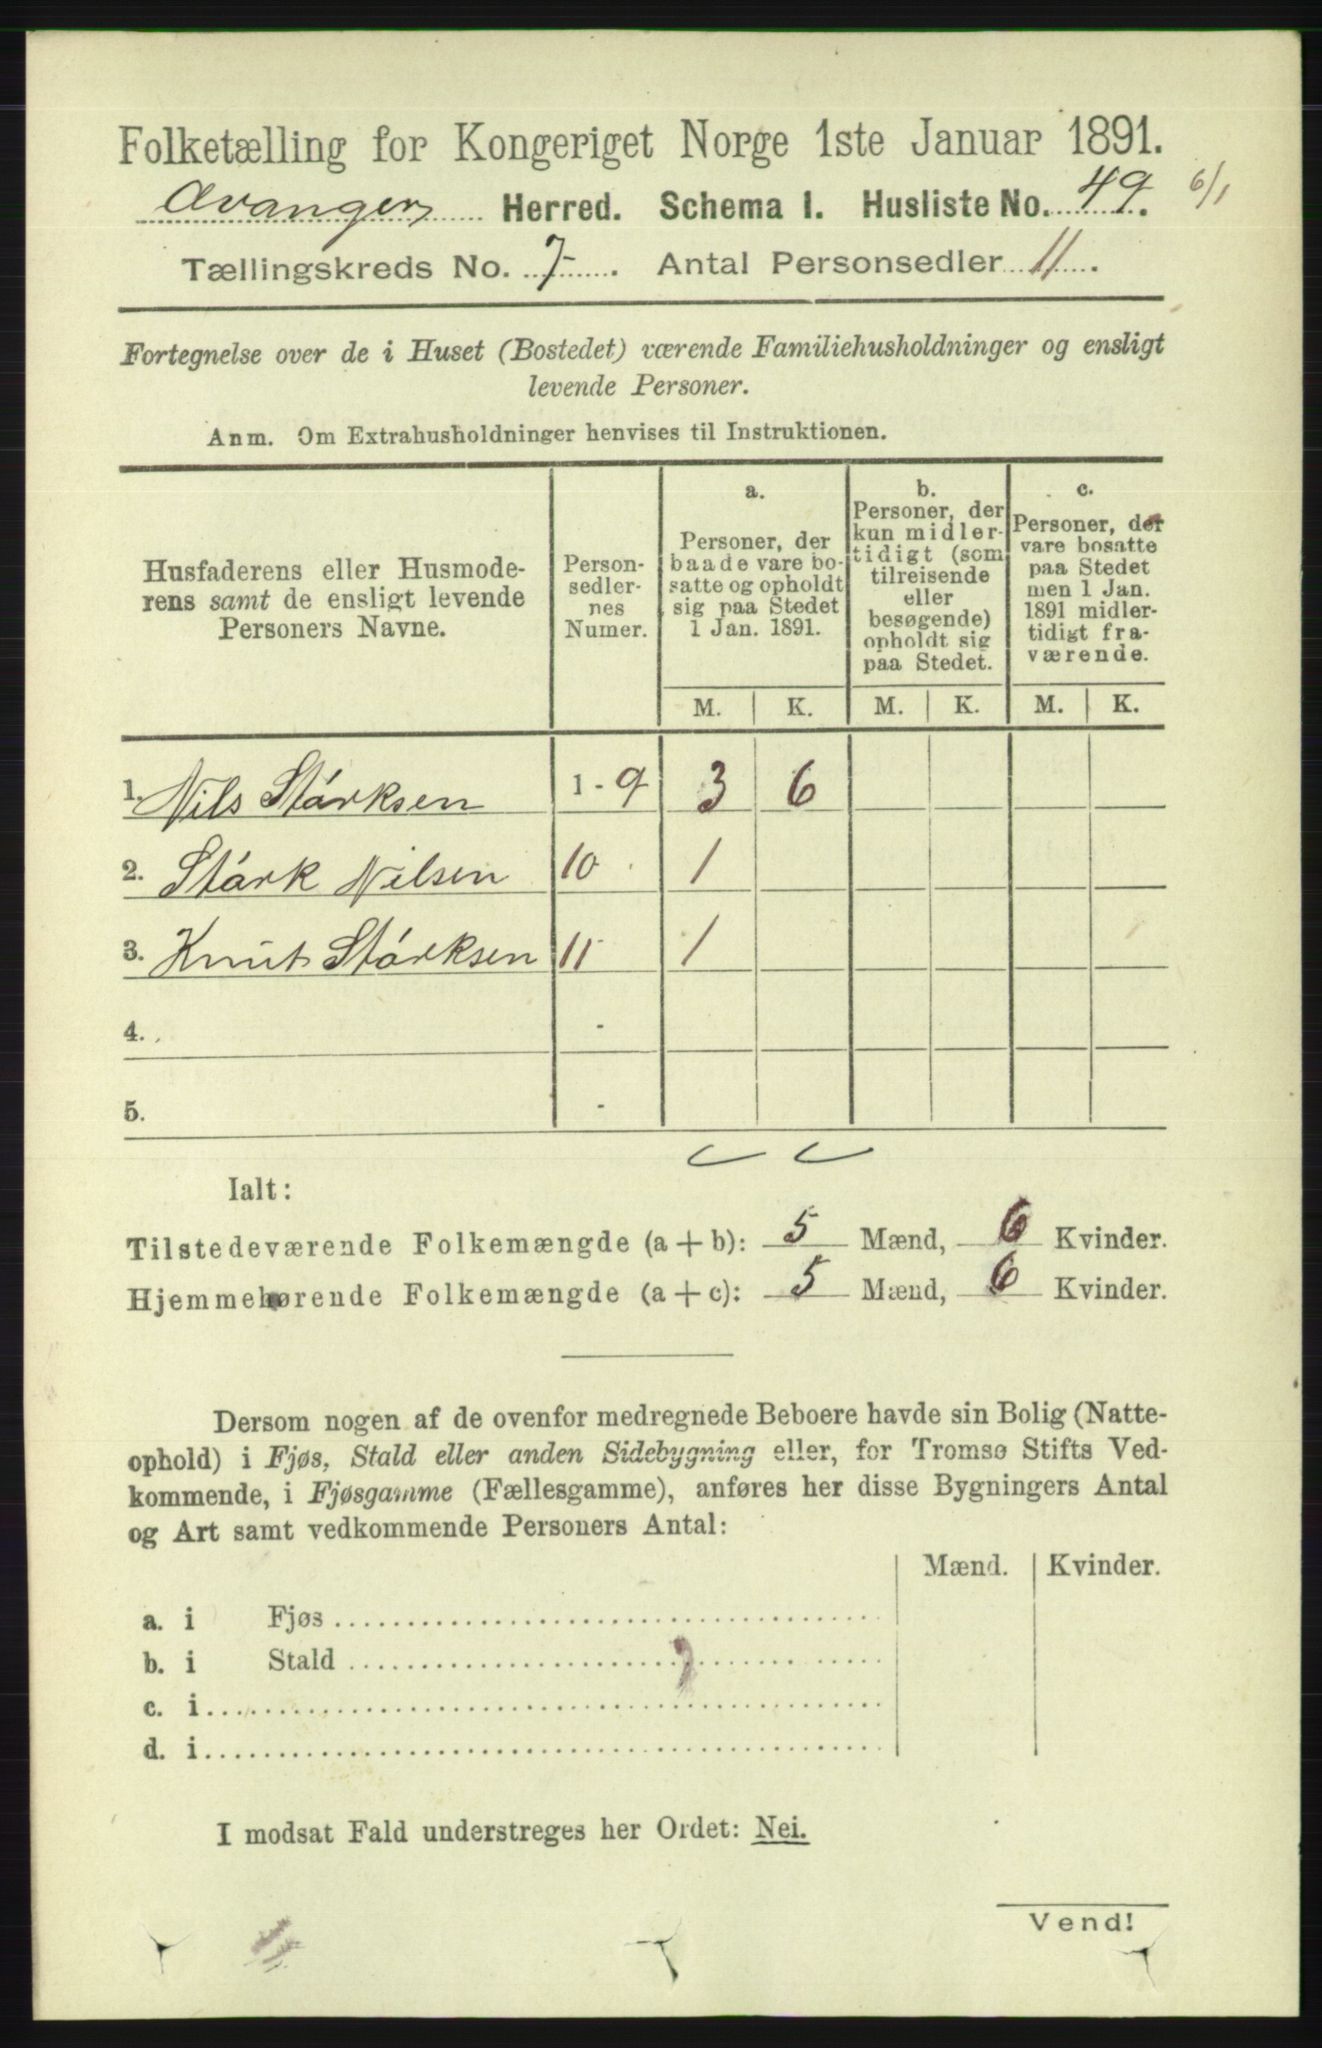 Folketælling for Kongeriget Norge 1ste Januar 1891.
Avanger Herred. Schema I. Husliste No. 49. 6/1
Tællingskreds No. 7. Antal Personsedler 11.
Fortegnelse over de i Huset (Bostedet) værende Familiehusholdninger og ensligt
levende Personer.
Anm. Om Extrahusholdninger henvises til Instruktionen.
Husfaderens eller Husmode-
rens samt de ensligt levende
Personers Navne.
Person-
sedler-
nes
Numer.
a.
Personer, der
baade vare bo-
satte og opholdt
sig paa Stedet
1 Jan. 1891.
b.
Personer, der
kun midler-
tidigt (som
tilreisende
eller
besøgende)
opholdt sig
paa Stedet.
c.
Personer, der
vare bosatte
paa Stedet
men 1 Jan.
1891 midler-
tidigt fra-
værende.
M. K. M. K. M. K.
1. Nils Stárksen 1 - 9 3 6
2. Stárk Nilsen 10 1
3. Knut Stárksen 11 1
4. -
5. -
Ialt:
Tilstedeværende Folkemængde (a + b): 5 Mænd, 6 Kvinder.
Hjemmehørende Folkemængde (a + c): 5 Mænd, 6 Kvinder.
Dersom nogen af de ovenfor medregnede Beboere havde sin Bolig (Natte-
ophold) i Fjøs, Stald eller anden Sidebygning eller, for Tromsø Stifts Ved-
kommende, i Fjøsgamme (Fællesgamme), anføres her disse Bygningers Antal
og Art samt vedkommende Personers Antal:
Mænd. Kvinder.
a. i Fjøs
b. i Stald
c. i
d. i
I modsat Fald understreges her Ordet: Nei.
Vend!